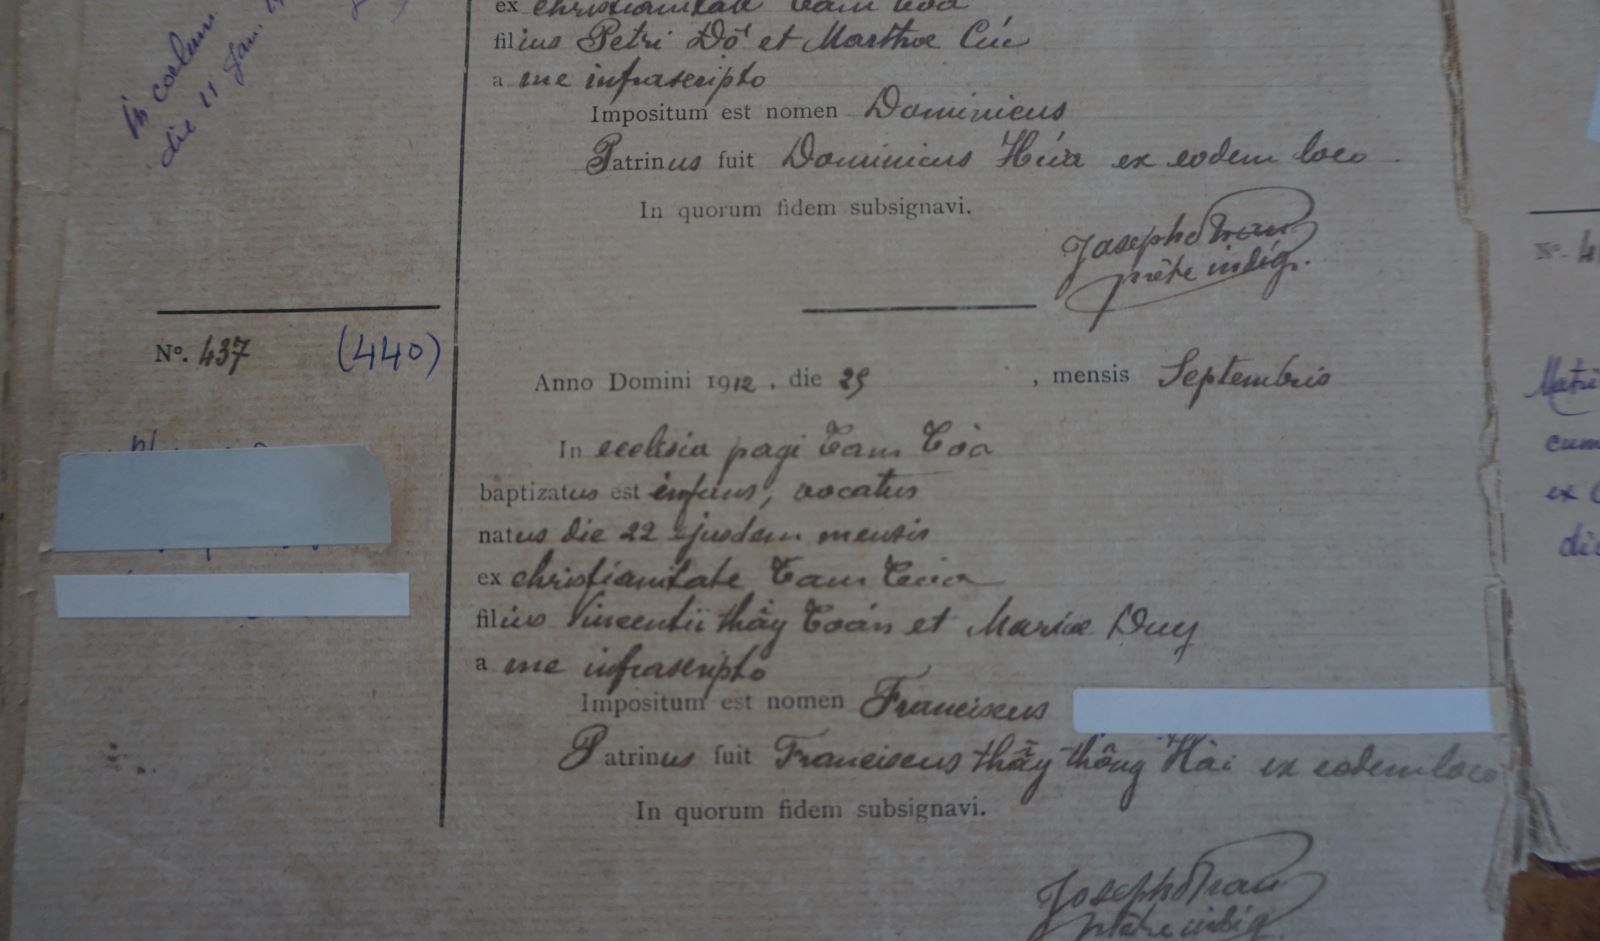 In coelum
die 11 Jan.
ex christianitate Tam Toà
filius Petri Dô et Marthae Cúc
a me infrascripto
Impositum est nomen Dominicus
Patrinus fuit Dominicus Hứa ex eodem loco
In quorum fidem subsignavi.
Joseph Tran
prêtre indig.
Nº. 437 (440)
Anno Domini 1912, die 25, mensis Septembris
In ecclesia pagi Tam Toà
baptizatus est infans, vocatus
natus die 22 ejusdem mensis
ex christianitate Tam Toà
filius Vincentii thầy Toán et Mariae Duy
a me infrascripto
Impositum est nomen Franciscus
Patrinus fuit Franciscus thầy thông Hài ex eodem loco
In quorum fidem subsignavi.
Joseph Tran
prêtre indig.
Nº. 4
Matri
cum
ex
die